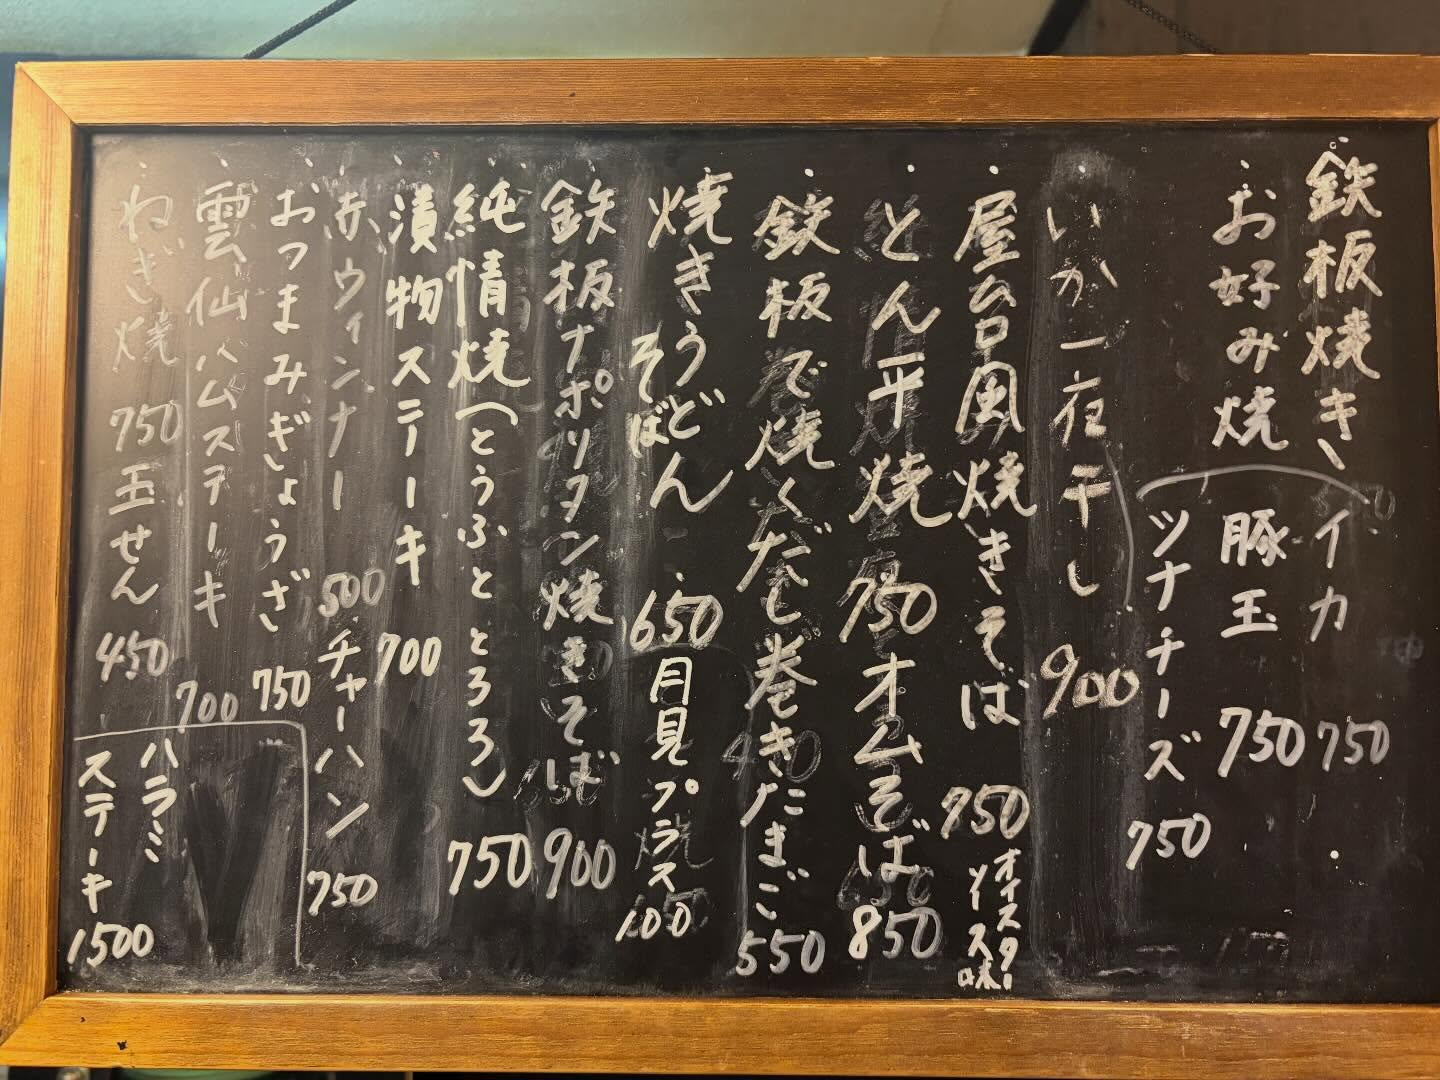 鉄板焼き イカ 750
お好み焼 豚玉 750
ツナチーズ 750
いか一夜干し 900
屋台風焼きそば 750 オイスターソース味
とん平焼 750 オムそば 850
鉄板で焼くだし巻きたまご 550
焼きうどん そば 650 月見プラス100
鉄板ナポリタン焼きそば 900
純情焼(とうふととろろ) 750
漬物ステーキ 700
赤ウィンナー 500
チャーハン 750
おつまみぎょうざ 750
雲仙ハムステーキ 700
ねぎ焼 750 玉せん 450
ハラミ
ステーキ 1500